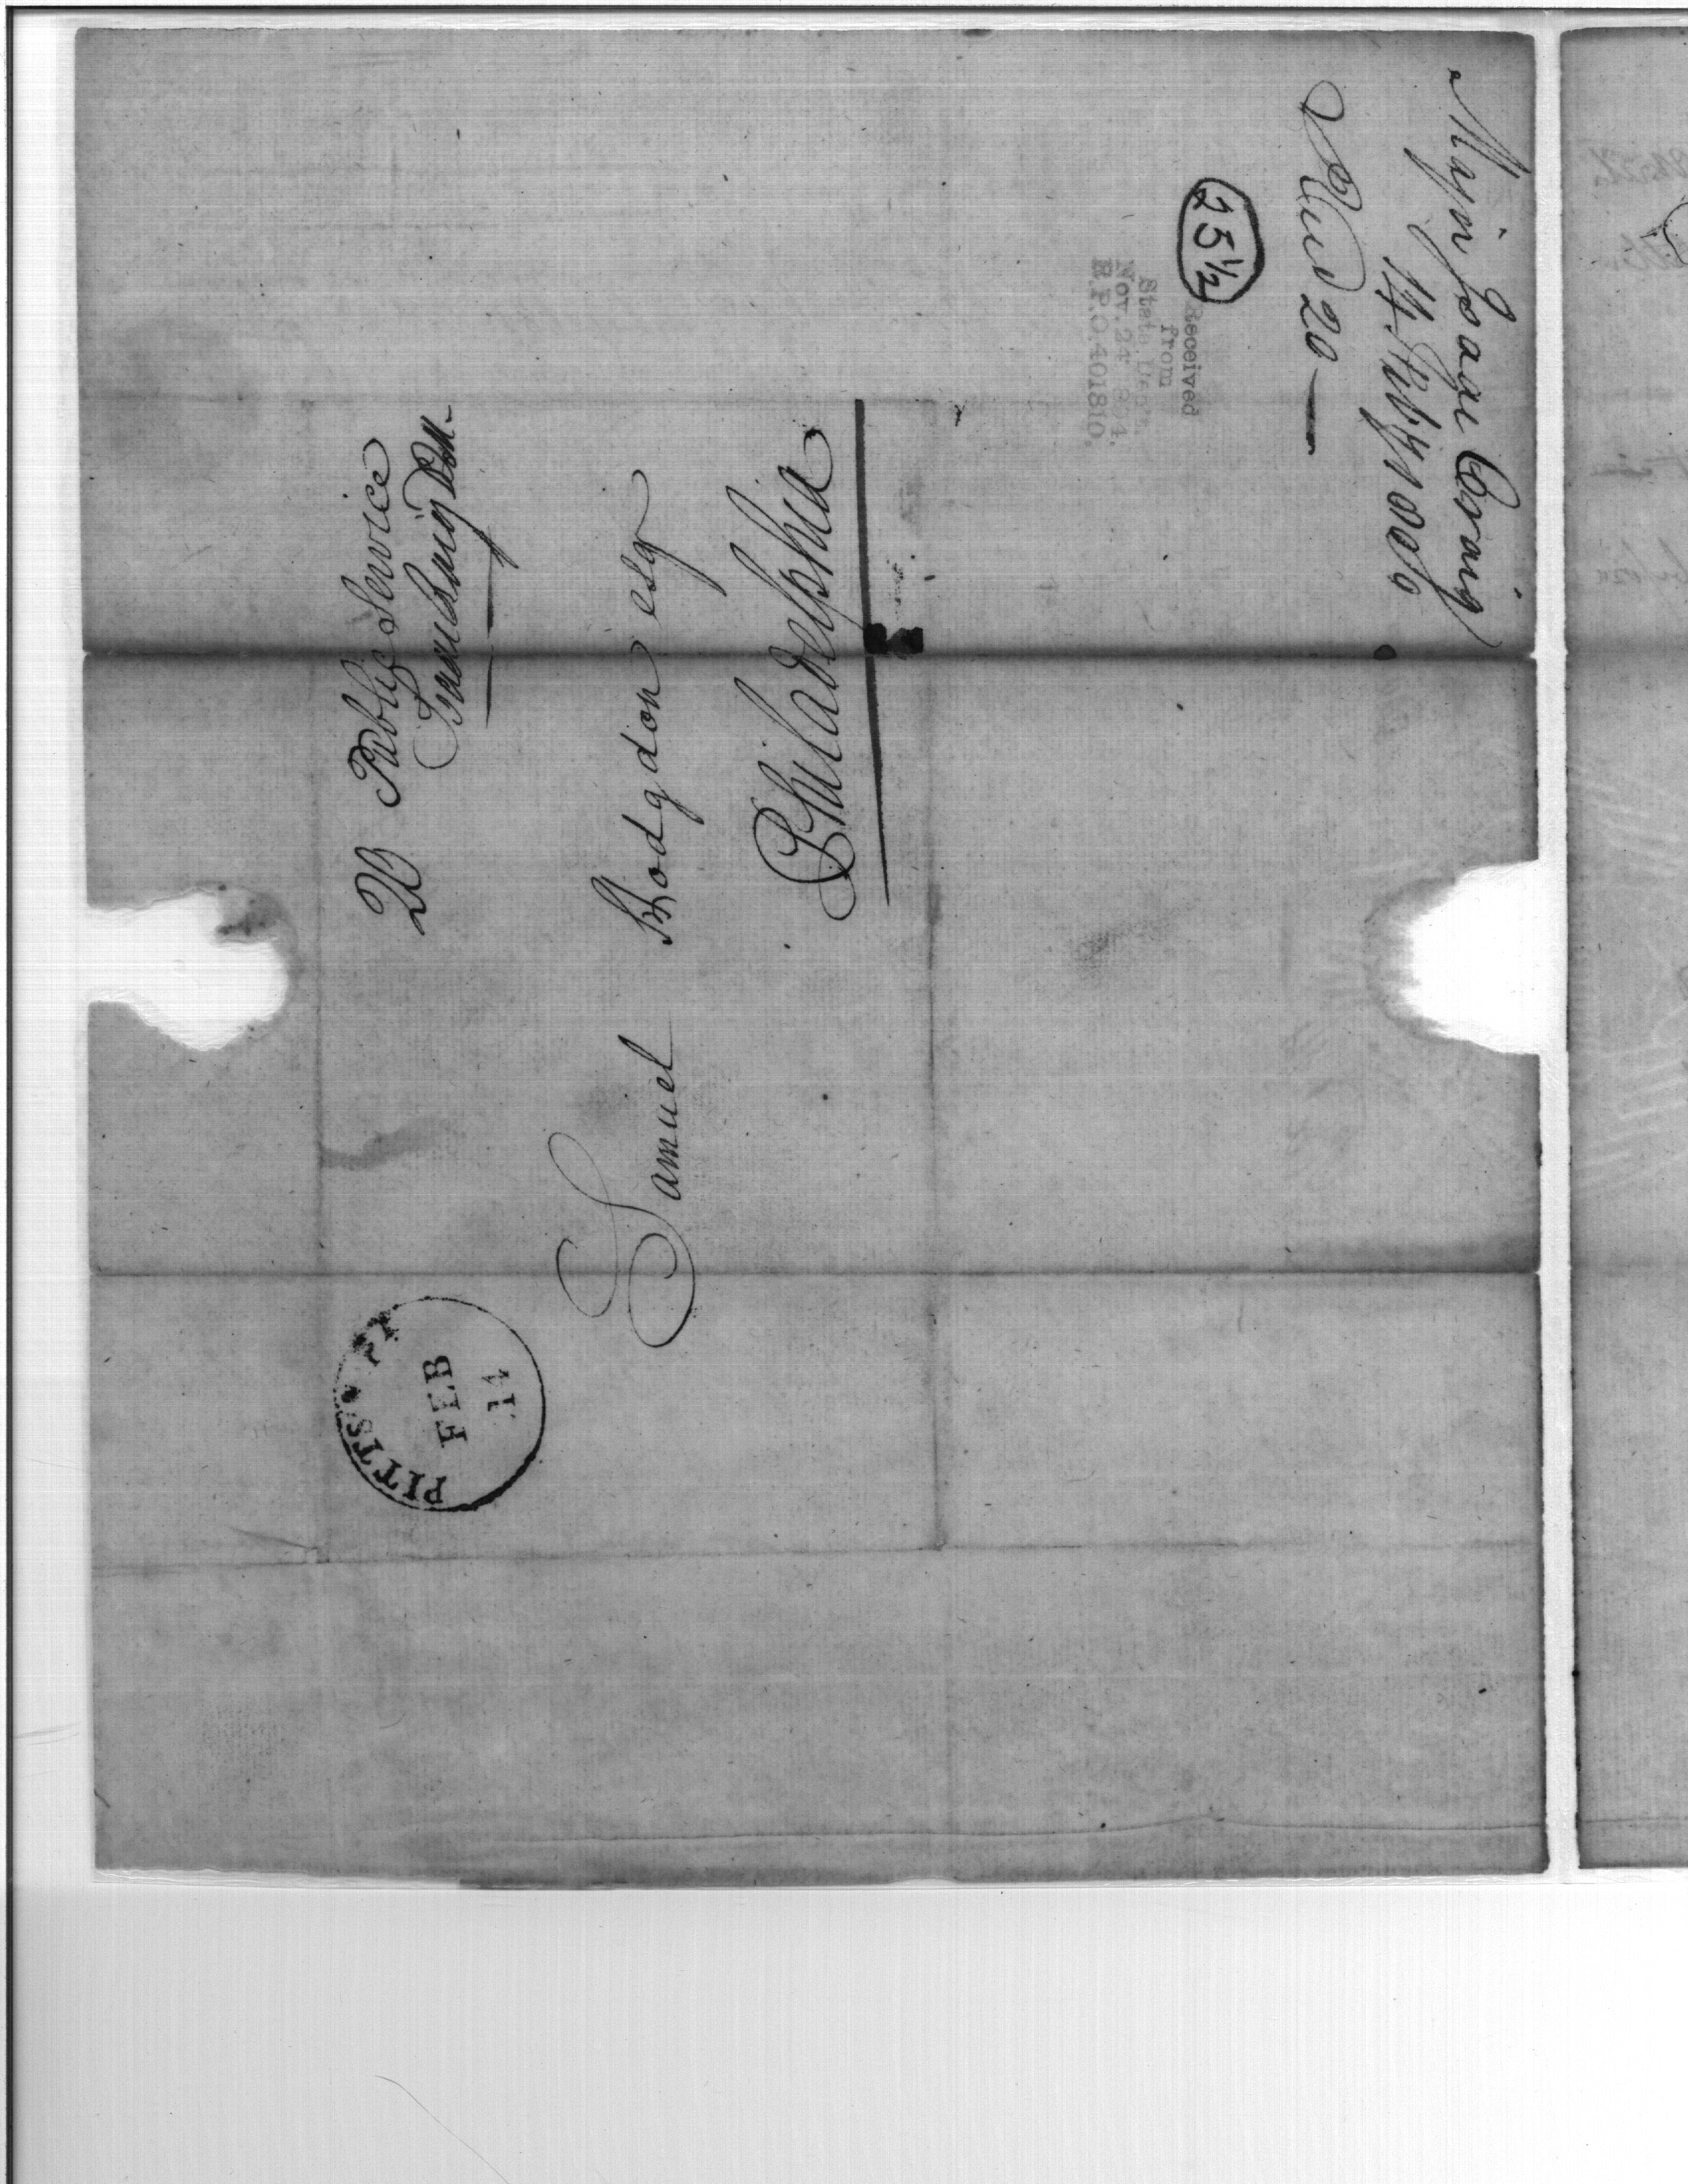 Major Isaac Craig
14 Feby 1800
Recd 20 —
25 1/2
Received
from
State Dep't.
Nov. 24 1894.
R.P.O. 401810.
20 Public Service
Isaac Craig
Samuel Hodgdon esq
Philadelphia
PITTS PA
FEB
14